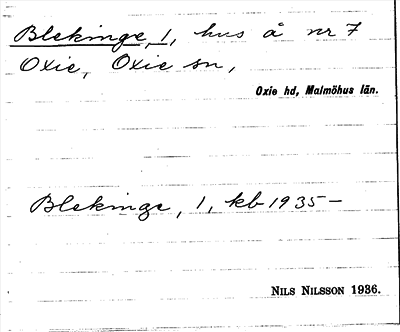 Blekinge, 1, hus å nr 7
Oxie, Oxie sn,
Oxie hd, Malmöhus län.
Blekinge, 1, kb 1935–
NILS NILSSON 1936.